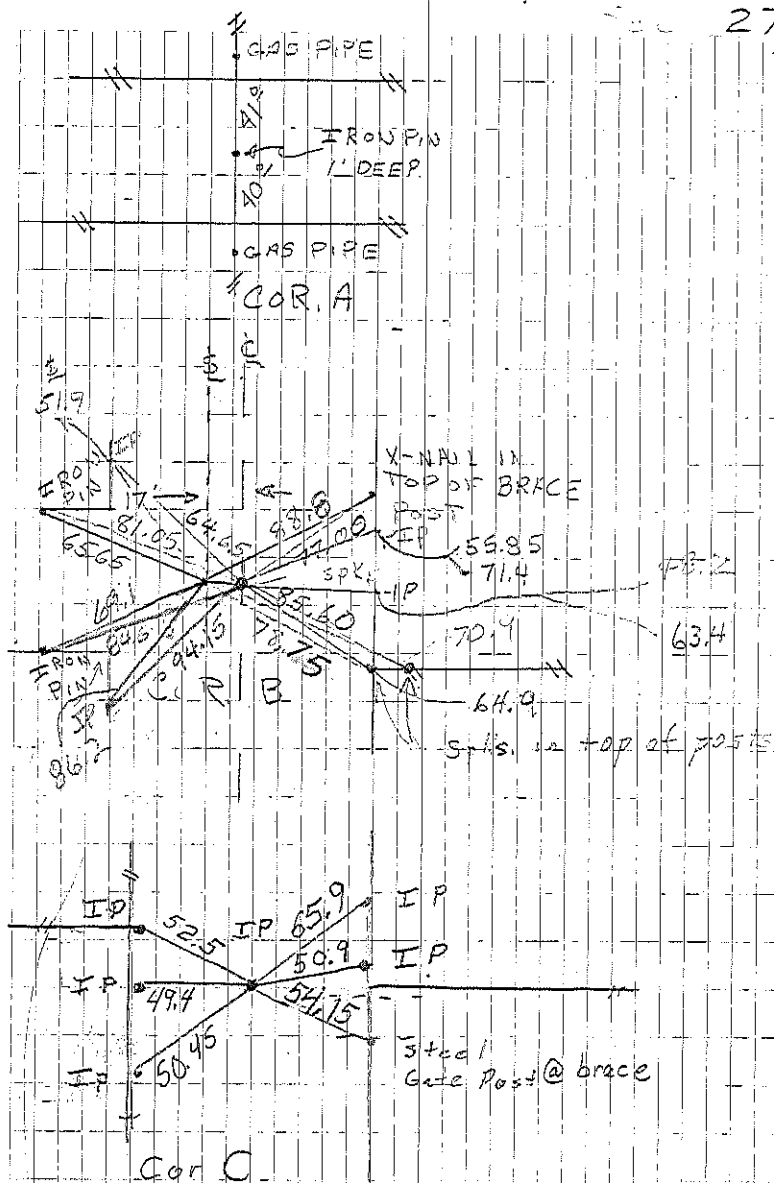 27
GAS PIPE
41'
IRON PIN
1' DEEP
40'
GAS PIPE
COR. A
51.9
IP
IRON PIN
17'
81.05
65.65
64.65
48.8
47.00
X-NAIL IN
TOP OF BRACE
POST
IP
55.85
71.4
spk.
IP
48.2
85.60
78.75
70.9
63.4
69.1
94.15
IRON PIN
86'
COR B
64.9
spks. in top of posts
IP
52.5
IP
65.9
IP
50.9
IP
IP
49.4
54.75
IP
50.45
Steel
Gate Post @ brace
Cor C